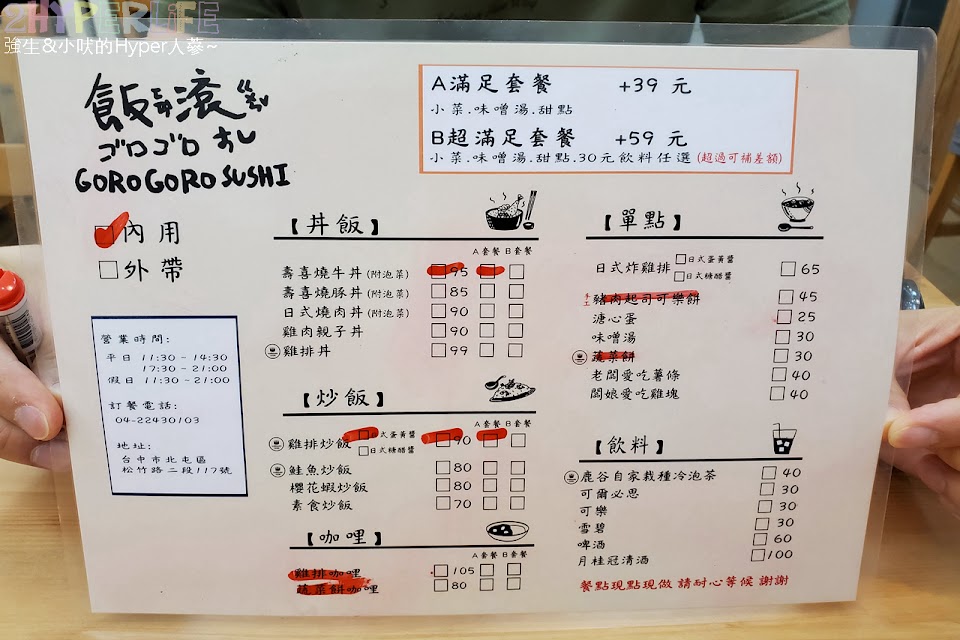 2HYPERLIFE
強生&小吠的Hyper人蔘~
飯滾
ゴロゴロ すし
GORO GORO SUSHI
A滿足套餐 +39 元
小菜.味噌湯.甜點
B超滿足套餐 +59 元
小菜.味噌湯.甜點.30元飲料任選 (超過可補差額)
□內用
□外帶
營業時間:
平日 11:30 - 14:30
17:30 - 21:00
假日 11:30 - 21:00
訂餐電話:
04-22430103
地址:
台中市北屯區
松竹路二段117號
【丼飯】
A套餐 B套餐
壽喜燒牛丼(附泡菜) □95 □ □
壽喜燒豚丼(附泡菜) □85 □ □
日式燒肉丼(附泡菜) □90 □ □
雞肉親子丼 □90 □ □
雞排丼 □99 □ □
【炒飯】
A套餐 B套餐
雞排炒飯 □日式蛋黃醬 □90 □ □
□日式糖醋醬
鮭魚炒飯 □80 □ □
櫻花蝦炒飯 □80 □ □
素食炒飯 □70 □ □
【咖哩】
A套餐 B套餐
雞排咖哩 □105 □ □
蔬菜餅咖哩 □80 □ □
【單點】
日式炸雞排 □日式蛋黃醬 □65
□日式糖醋醬
手工豬肉起司可樂餅 □45
溏心蛋 □25
味噌湯 □30
蔬菜餅 □30
老闆愛吃薯條 □40
闆娘愛吃雞塊 □40
【飲料】
鹿谷自家栽種冷泡茶 □40
可爾必思 □30
可樂 □30
雪碧 □30
啤酒 □60
月桂冠清酒 □100
餐點現點現做 請耐心等候 謝謝